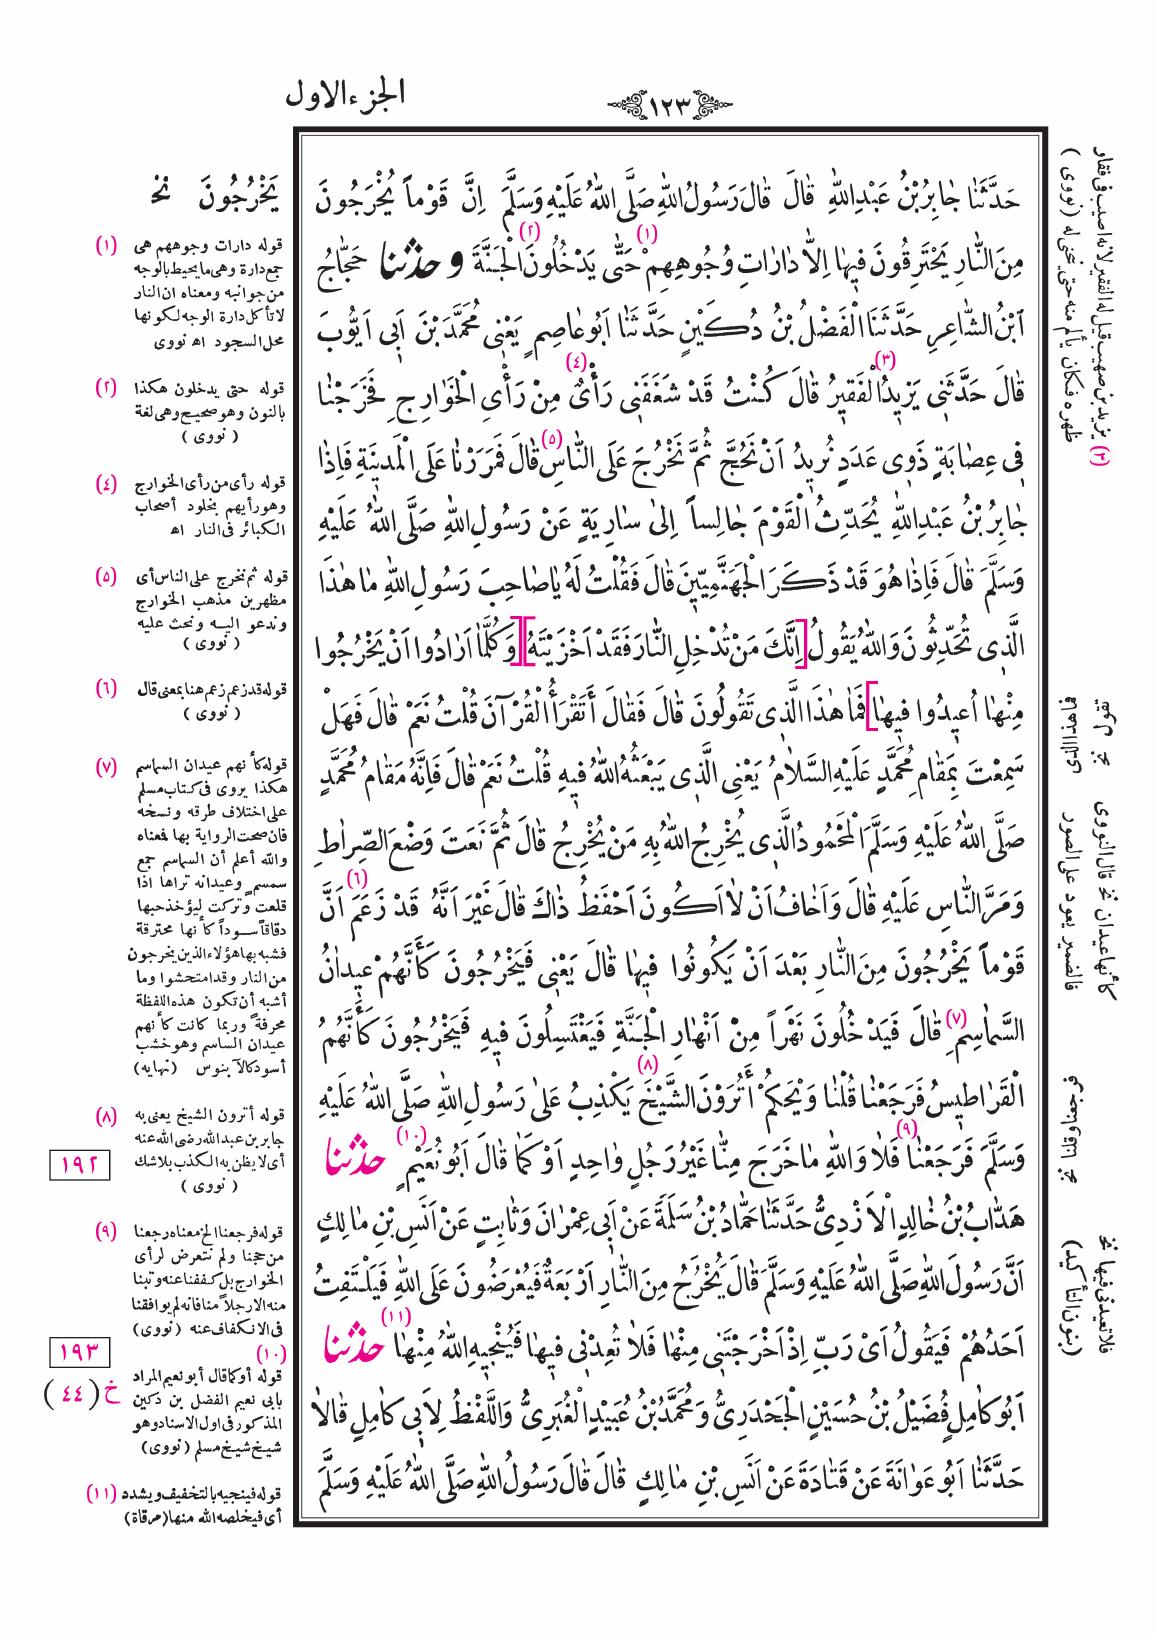 الجزء الاول
١٢٣
حَدَّثَنَا جَابِرُ بْنُ عَبْدِ اللّٰهِ قَالَ قَالَ رَسُولُ اللّٰهِ صَلَّى اللّٰهُ عَلَيْهِ وَسَلَّمَ اِنَّ قَوْماً يُخْرَجُونَ
مِنَ النَّارِ يَحْتَرِقُونَ فِيهَا اِلاَّ دَارَاتِ وُجُوهِهِمْ (١) حَتَّى يَدْخُلُونَ (٢) الْجَنَّةَ و حدثنا حَجَّاجُ
ابْنُ الشَّاعِرِ حَدَّثَنَا الْفَضْلُ بْنُ دُكَيْنٍ حَدَّثَنَا اَبُو عَاصِمٍ يَعْنِى مُحَمَّدَ بْنَ اَبِى اَيُّوبَ
قَالَ حَدَّثَنِى يَزِيدُ (٣) الْفَقِيرُ قَالَ كُنْتُ قَدْ شَغَفَنِى رَأْىٌ (٤) مِنْ رَأْىِ الْخَوَارِجِ فَخَرَجْنَا
فِى عِصَابَةٍ ذَوِى عَدَدٍ نُرِيدُ اَنْ نَحُجَّ ثُمَّ نَخْرُجَ عَلَى النَّاسِ (٥) قَالَ فَمَرَرْنَا عَلَى الْمَدِينَةِ فَاِذَا
جَابِرُ بْنُ عَبْدِ اللّٰهِ يُحَدِّثُ الْقَوْمَ جَالِساً اِلىٰ سَارِيَةٍ عَنْ رَسُولِ اللّٰهِ صَلَّى اللّٰهُ عَلَيْهِ
وَسَلَّمَ قَالَ فَاِذَا هُوَ قَدْ ذَكَرَ الْجَهَنَّمِيِّينَ قَالَ فَقُلْتُ لَهُ يَا صَاحِبَ رَسُولِ اللّٰهِ مَا هٰذَا
الَّذِى تُحَدِّثُونَ وَاللّٰهُ يَقُولُ [اِنَّكَ مَنْ تُدْخِلِ النَّارَ فَقَدْ اَخْزَيْتَهُ] [وَكُلَّمَا اَرَادُوا اَنْ يَخْرُجُوا
مِنْهَا اُعِيدُوا فِيهَا] فَمَا هٰذَا الَّذِى تَقُولُونَ قَالَ فَقَالَ أَتَقْرَأُ الْقُرْآنَ قُلْتُ نَعَمْ قَالَ فَهَلْ
سَمِعْتَ بِمَقَامِ مُحَمَّدٍ عَلَيْهِ السَّلَامُ يَعْنِى الَّذِى يَبْعَثُهُ اللّٰهُ فِيهِ قُلْتُ نَعَمْ قَالَ فَاِنَّهُ مَقَامُ مُحَمَّدٍ
صَلَّى اللّٰهُ عَلَيْهِ وَسَلَّمَ الْمَحْمُودُ الَّذِى يُخْرِجُ اللّٰهُ بِهِ مَنْ يُخْرِجُ قَالَ ثُمَّ نَعَتَ وَضْعَ الصِّرَاطِ
وَمَرَّ النَّاسِ عَلَيْهِ قَالَ وَاَخَافُ اَنْ لَا اَكُونَ اَحْفَظُ ذَاكَ قَالَ غَيْرَ اَنَّهُ قَدْ زَعَمَ (٦) اَنَّ
قَوْماً يَخْرُجُونَ مِنَ النَّارِ بَعْدَ اَنْ يَكُونُوا فِيهَا قَالَ يَعْنِى فَيَخْرُجُونَ كَأَنَّهُمْ عِيدَانُ
السَّمَاسِمِ (٧) قَالَ فَيَدْخُلُونَ نَهْراً مِنْ اَنْهَارِ الْجَنَّةِ فَيَغْتَسِلُونَ فِيهِ فَيَخْرُجُونَ كَأَنَّهُمُ
الْقَرَاطِيسُ فَرَجَعْنَا قُلْنَا وَيْحَكُمْ أَتُرَوْنَ الشَّيْخَ (٨) يَكْذِبُ عَلىٰ رَسُولِ اللّٰهِ صَلَّى اللّٰهُ عَلَيْهِ
وَسَلَّمَ فَرَجَعْنَا (٩) فَلَا وَاللّٰهِ مَا خَرَجَ مِنَّا غَيْرُ رَجُلٍ وَاحِدٍ اَوْ كَمَا قَالَ اَبُو نُعَيْمٍ (١٠) حدثنا
هَدَّابُ بْنُ خَالِدٍ الْاَزْدِىُّ حَدَّثَنَا حَمَّادُ بْنُ سَلَمَةَ عَنْ اَبِى عِمْرَانَ وَثَابِتٍ عَنْ اَنَسِ بْنِ مَالِكٍ
اَنَّ رَسُولَ اللّٰهِ صَلَّى اللّٰهُ عَلَيْهِ وَسَلَّمَ قَالَ يَخْرُجُ مِنَ النَّارِ اَرْبَعَةٌ فَيُعْرَضُونَ عَلَى اللّٰهِ فَيَلْتَفِتُ
اَحَدُهُمْ فَيَقُولُ اَىْ رَبِّ اِذْ اَخْرَجْتَنِى مِنْهَا فَلَا تُعِدْنِى فِيهَا فَيُنْجِيهِ (١١) اللّٰهُ مِنْهَا حدثنا
اَبُو كَامِلٍ فُضَيْلُ بْنُ حُسَيْنٍ الْجَحْدَرِىُّ وَ مُحَمَّدُ بْنُ عُبَيْدٍ الْغُبَرِىُّ وَاللَّفْظُ لِاَبِى كَامِلٍ قَالَا
حَدَّثَنَا اَبُو عَوَانَةَ عَنْ قَتَادَةَ عَنْ اَنَسِ بْنِ مَالِكٍ قَالَ قَالَ رَسُولُ اللّٰهِ صَلَّى اللّٰهُ عَلَيْهِ وَسَلَّمَ
يَخْرُجُونَ نخ
(١) قوله دارات وجوههم هى
جمع دارة وهى ما يحيط بالوجه
من جوانبه ومعناه ان النار
لا تأكل دارة الوجه لكونها
محل السجود اه نووى
(٢) قوله حتى يدخلون هكذا
بالنون وهو صحيح وهى لغة
( نووى )
(٤) قوله رأى من رأى الخوارج
وهو رأيهم بخلود أصحاب
الكبائر فى النار اه
(٥) قوله ثم نخرج على الناس أى
مظهرين مذهب الخوارج
وندعو اليه ونحث عليه
( نووى )
(٦) قوله قد زعم زعم هنا بمعنى قال
( نووى )
(٧) قوله كأنهم عيدان السماسم
هكذا يروى فى كتاب مسلم
على اختلاف طرقه ونسخه
فان صحت الرواية بها فمعناه
والله أعلم أن السماسم جمع
سمسم وعيدانه تراها اذا
قلعت وتركت ليؤخذ حبها
دقاقاً سوداً كأنها محترقة
فشبه بها هؤلاء الذين يخرجون
من النار وقد امتحشوا وما
أشبه أن تكون هذه اللفظة
محرفة وربما كانت كأنهم
عيدان الساسم وهو خشب
أسود كالآبنوس (نهايه)
(٨) قوله أترون الشيخ يعنى به
جابر بن عبد الله رضى الله عنه
أى لا يظن به الكذب بلا شك
( نووى )
١٩٢
(٩) قوله فرجعنا الخ معناه رجعنا
من حجنا ولم نتعرض لرأى
الخوارج بل كففنا عنه وتبنا
منه الا رجلاً منا فانه لم يوافقنا
فى الانكفاف عنه (نووى)
(١٠)
١٩٣
قوله أو كما قال أبو نعيم المراد
بابى نعيم الفضل بن دكين
المذكور فى اول الاسناد وهو
شيخ شيخ مسلم (نووى)
خ (٤٤)
(١١) قوله فينجيه بالتخفيف ويشدد
أى فيخلصه الله منها (مرقاة)
(٣) يزيد بن صهيب قيل له الفقير لانه اصيب فى فقار
ظهره فكان يألم منه حتى ينحنى له (نووى)
كأنها عيدان نخ قال النووى
فالضمير يعود على الصور
فلا تعيدنى فيها نخ
(بنون التأكيد)